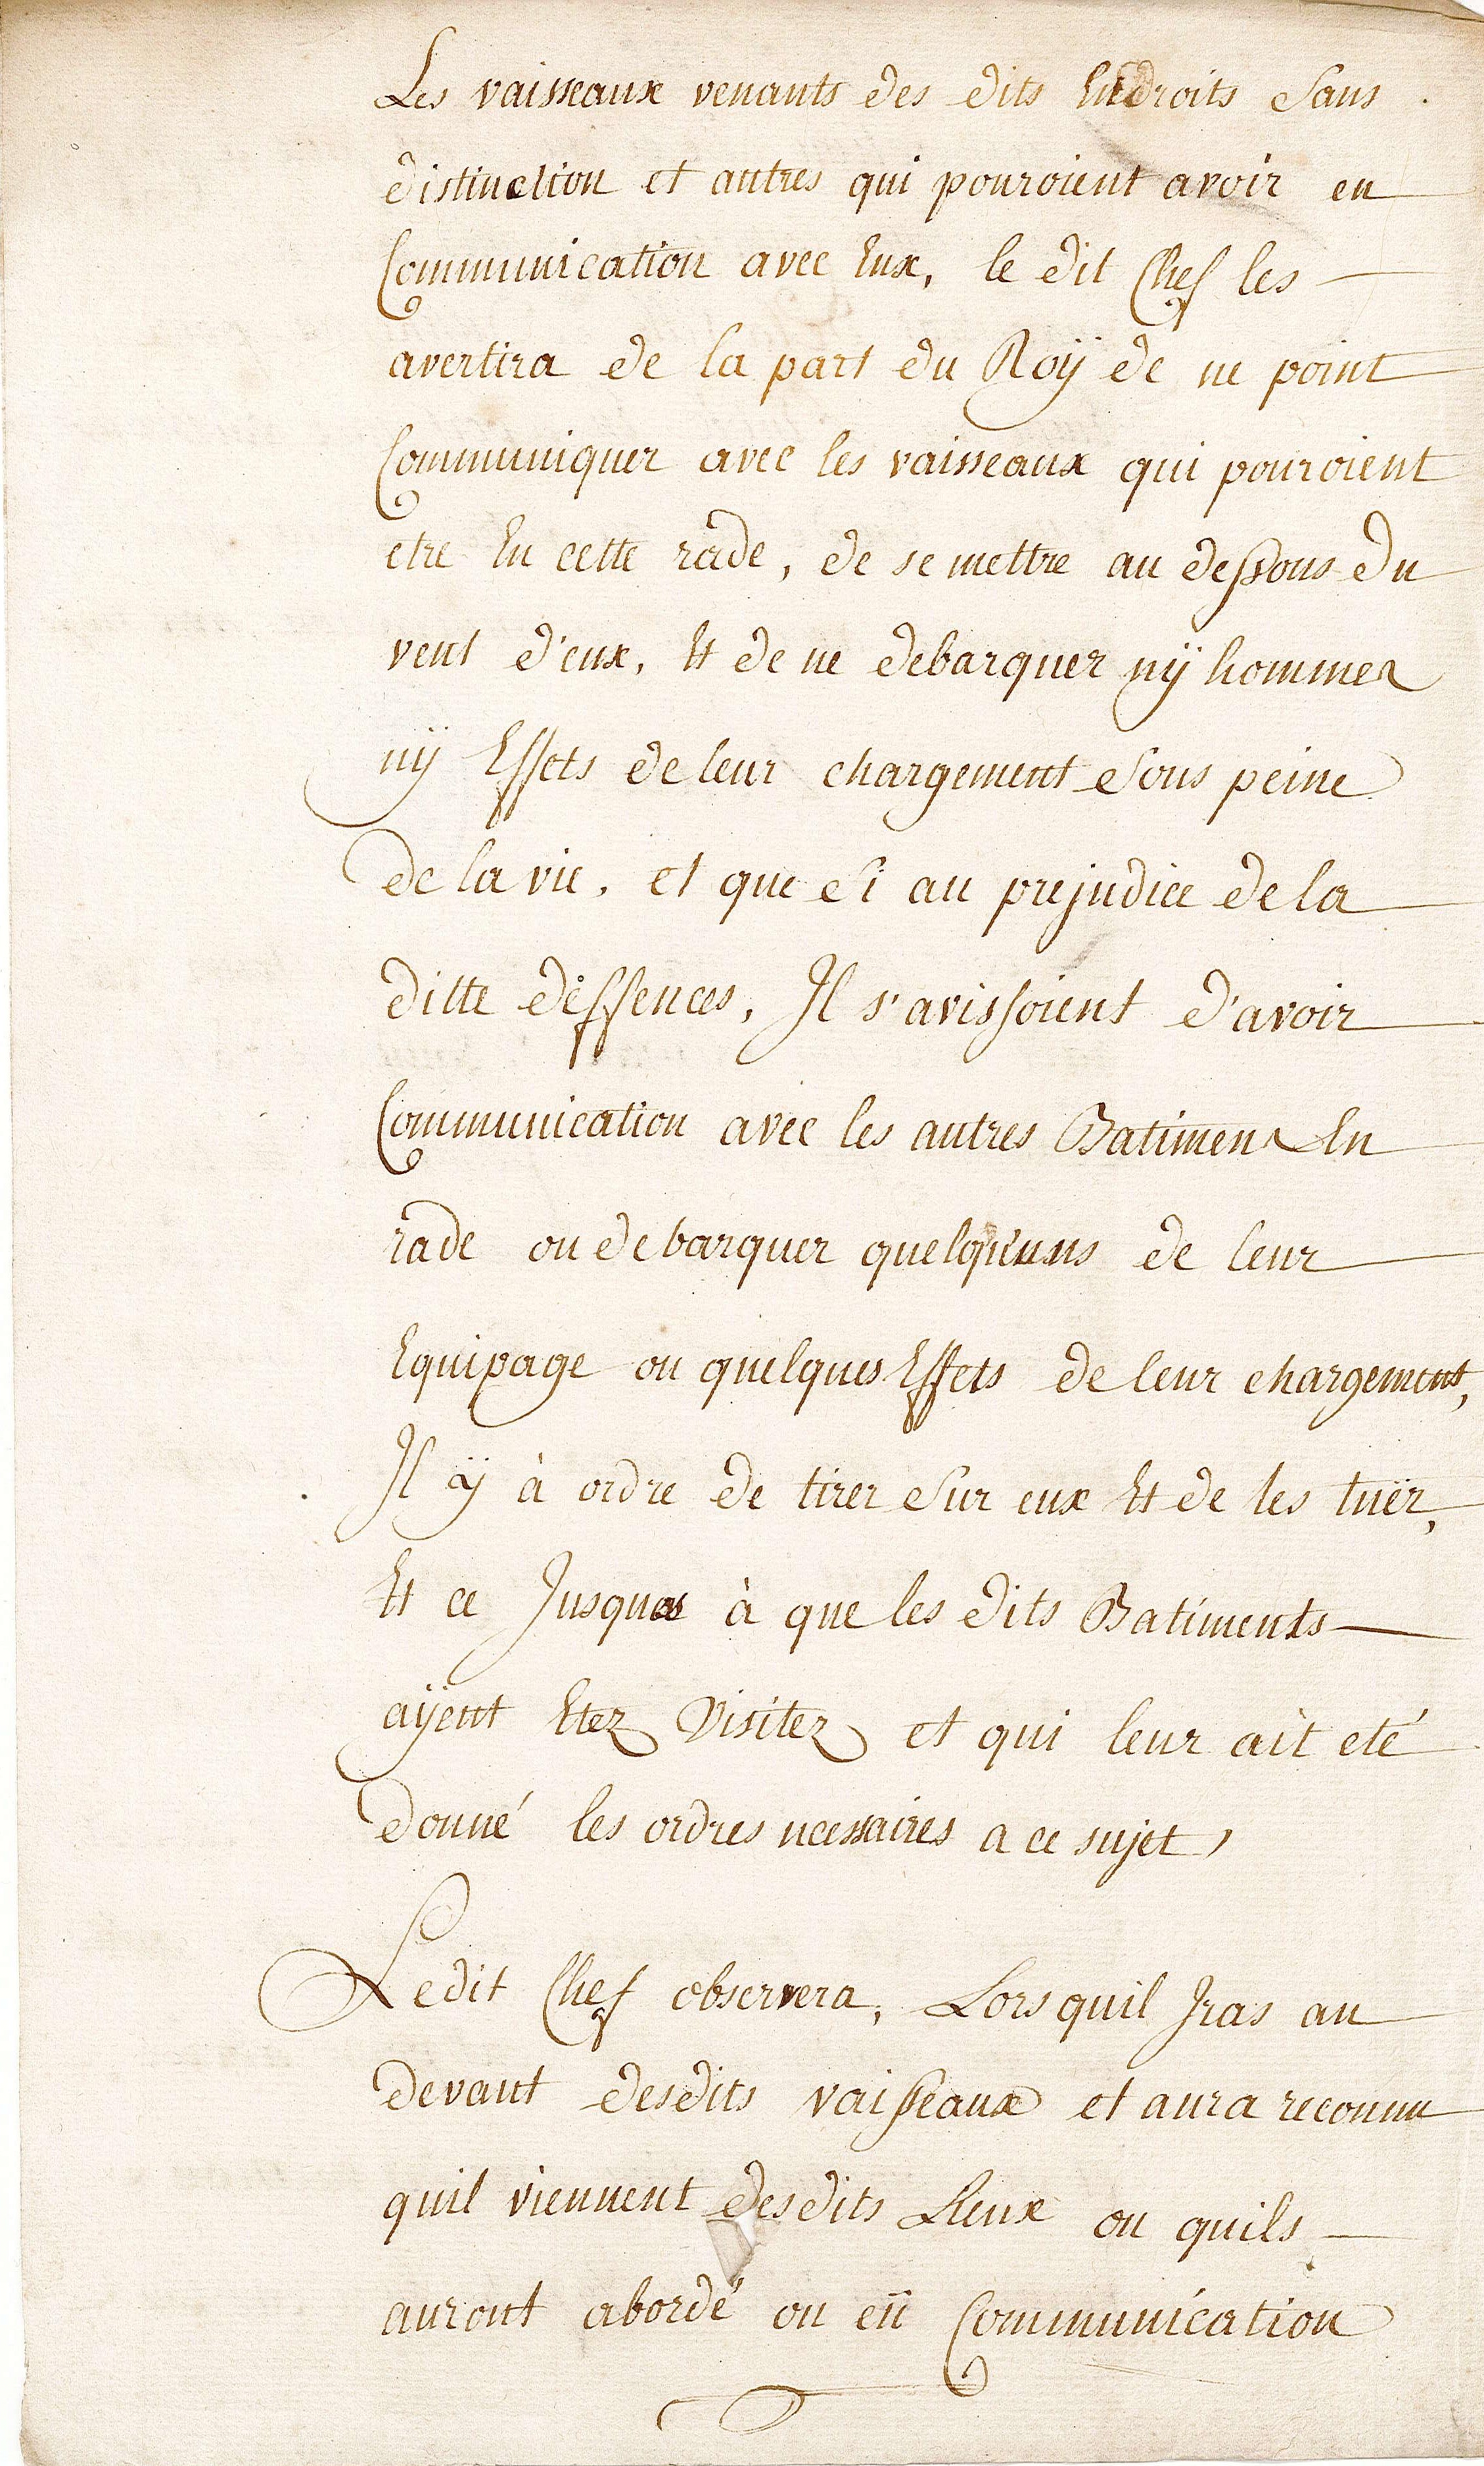 Les vaisseaux venants des dits Endroits Sans
distinction et autres qui pouroient avoir eu
Communication avec Eux, le dit Chef les
avertira de la part du Roÿ de ne point
Communiquer avec les vaisseaux qui pouroient
etre En cette rade, de se mettre au dessous du
vent d'eux, Et de ne debarquer nÿ hommes
nÿ Effets de leur chargement Sous peine
de la vie, et que Si au prejudice de la
ditte deffences, Il s'avissoient d'avoir
Communication avec les autres Batimens En
rade ou debarquer quelqu'uns de leur
Equipage ou quelques Effets de leur chargement,
Il ÿ à ordre de tirer Sur eux Et de les tuër,
Et ce Jusquas à que les dits Batiments
aÿent Etez Visitez et qui leur ait eté
donné les ordres ncessaires a ce sujet,
Ledit Chef observera, Lors quil Jras au
devant desdits vaisseaux et aura reconnu
quil viennent desdits Lieux ou quils
auront abordé ou eü Communication